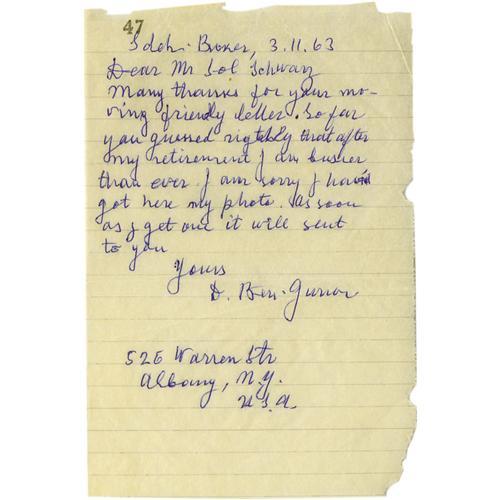 47
Sdeh-Boker, 3.11.63
Dear Mr Sol Schwarz
Many thanks for your mo-
ving friendly letter. So far
you guessed rightly that after
my retirement I am busier
than ever. I am sorry I hav'nt
got here my photo. As soon
as I get one it will sent
to you
Yours
D. Ben-Gurion
525 Warren Str
Albany, N.Y.
U.S.A